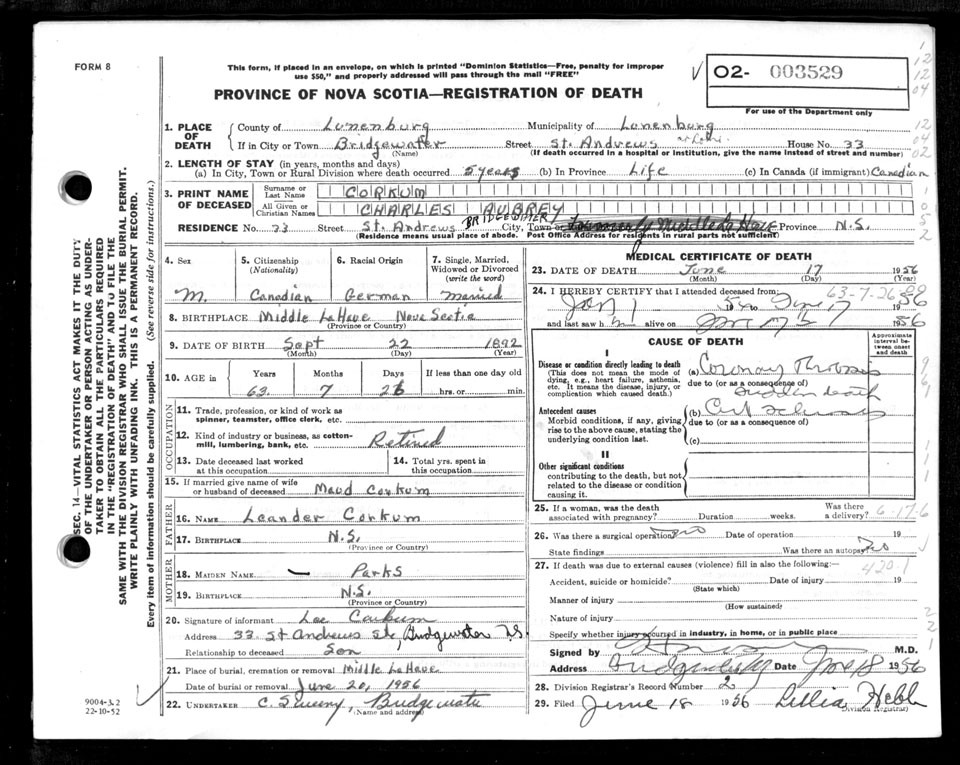 FORM 8
This form, if placed in an envelope, on which is printed "Dominion Statistics—Free, penalty for improper
use $50," and properly addressed will pass through the mail "FREE"
O2- 003529
PROVINCE OF NOVA SCOTIA—REGISTRATION OF DEATH
For use of the Department only
1. PLACE OF DEATH
County of Lunenburg Municipality of Lunenburg
If in City or Town Bridgewater Street St. Andrews House No. 33
(Name) (If death occurred in a hospital or institution, give the name instead of street and number)
2. LENGTH OF STAY (in years, months and days)
(a) In City, Town or Rural Division where death occurred 5 years (b) In Province Life (c) In Canada (if immigrant) Canadian
3. PRINT NAME OF DECEASED
Surname or Last Name CORKUM
All Given or Christian Names CHARLES AUBREY
BRIDGEWATER
RESIDENCE No. 33 Street St. Andrews City, Town or Formerly Middle La Have Province N.S.
(Residence means usual place of abode. Post Office Address for residents in rural parts not sufficient)
4. Sex M.
5. Citizenship (Nationality) Canadian
6. Racial Origin German
7. Single, Married, Widowed or Divorced (write the word) Married
8. BIRTHPLACE Middle La Have Nova Scotia
(Province or Country)
9. DATE OF BIRTH Sept 22 1892
(Month) (Day) (Year)
10. AGE in Years Months Days If less than one day old
63 7 26 hrs. or min.
OCCUPATION
11. Trade, profession, or kind of work as
spinner, teamster, office clerk, etc.
12. Kind of industry or business, as cotton-
mill, lumbering, bank, etc. Retired
13. Date deceased last worked
at this occupation
14. Total yrs. spent in
this occupation
15. If married give name of wife
or husband of deceased Maud Corkum
FATHER
16. NAME Leander Corkum
17. BIRTHPLACE N.S.
(Province or Country)
MOTHER
18. MAIDEN NAME — Parks
19. BIRTHPLACE N.S.
(Province or Country)
20. Signature of informant Lee Corkum
Address 33 St Andrews St, Bridgewater N.S.
Relationship to deceased Son
21. Place of burial, cremation or removal Middle La Have
Date of burial or removal June 20, 1956
22. UNDERTAKER C. Sweeny, Bridgewater
(Name and address)
MEDICAL CERTIFICATE OF DEATH
23. DATE OF DEATH June 17 1956
(Month) (Day) (Year)
63-7-26
24. I HEREBY CERTIFY that I attended deceased from:
Jan 1 1956 June 17 1956
and last saw h im alive on June 17 1956
CAUSE OF DEATH
Approximate interval between onset and death
I
Disease or condition directly leading to death
(This does not mean the mode of
dying, e.g., heart failure, asthenia,
etc. It means the disease, injury, or
complication which caused death.)
(a) Coronary Thrombosis
due to (or as a consequence of)
Sudden death
Antecedent causes
Morbid conditions, if any, giving
rise to the above cause, stating the
underlying condition last.
(b) Art sclerosis
due to (or as a consequence of)
(c)
II
Other significant conditions
contributing to the death, but not
related to the disease or condition
causing it.
25. If a woman, was the death
associated with pregnancy? Duration weeks. Was there a delivery?
6-17-6
26. Was there a surgical operation? no Date of operation 19
State findings Was there an autopsy? no
27. If death was due to external causes (violence) fill in also the following:—
420.1
Accident, suicide or homicide? Date of injury 19
(State which)
Manner of injury
(How sustained)
Nature of injury
Specify whether injury occurred in industry, in home, or in public place
Signed by M.D.
Address Bridgewater Date June 18 1956
28. Division Registrar's Record Number 2
29. Filed June 18 1956 Lillia Hebb
Division Registrar)
SEC. 14—VITAL STATISTICS ACT MAKES IT THE DUTY
OF THE UNDERTAKER OR PERSON ACTING AS UNDER-
TAKER TO OBTAIN ALL THE PARTICULARS REQUIRED
IN THE "REGISTRATION OF DEATH" AND TO FILE THE
SAME WITH THE DIVISION REGISTRAR WHO SHALL ISSUE THE BURIAL PERMIT.
WRITE PLAINLY WITH UNFADING INK. THIS IS A PERMANENT RECORD.
Every item of information should be carefully supplied. (See reverse side for instructions.)
9004-3.2
22-10-52